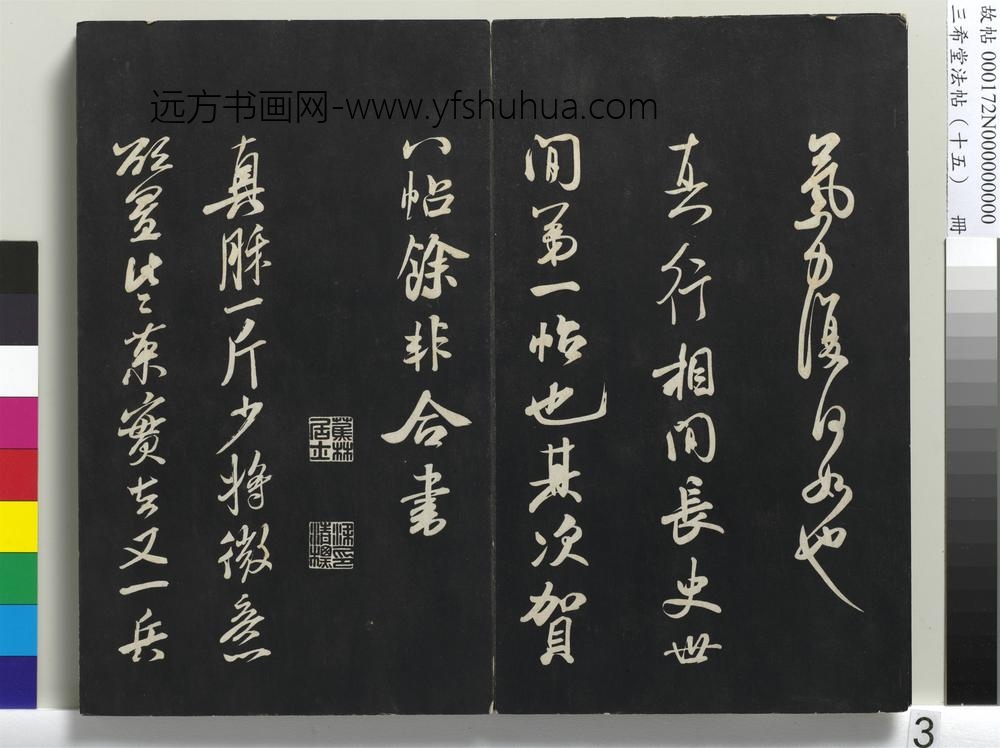 远方书画网-www.yfshuhua.com
氣力復何如也
真行相間長史世
間第一帖也其次賀
八帖餘非合書
蕉林居士
梁印清標
真酥一斤少將微意
欲置些菓實去又一兵
故帖 000172N000000000
三希堂法帖（十五） 冊
3